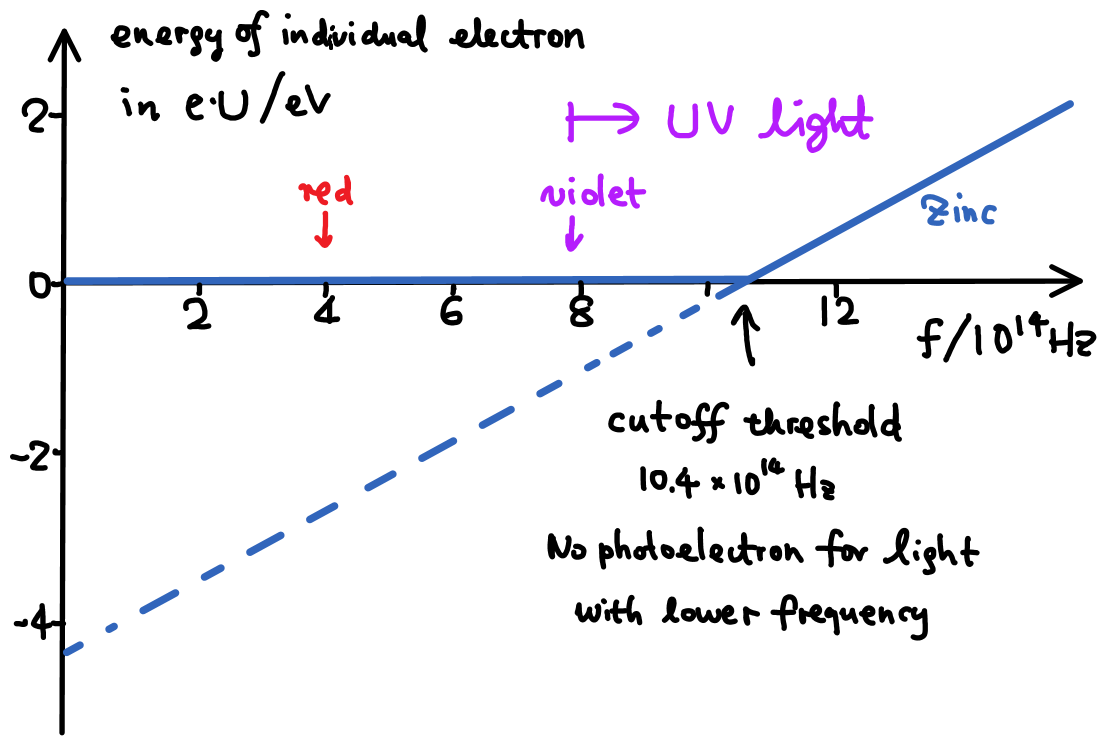 energy of individual electron
in e·U/eV
2
UV light
red
violet
zinc
0
2
4
6
8
12
f/10¹⁴Hz
-2
cutoff threshold
10.4 × 10¹⁴ Hz
No photoelectron for light
with lower frequency
-4